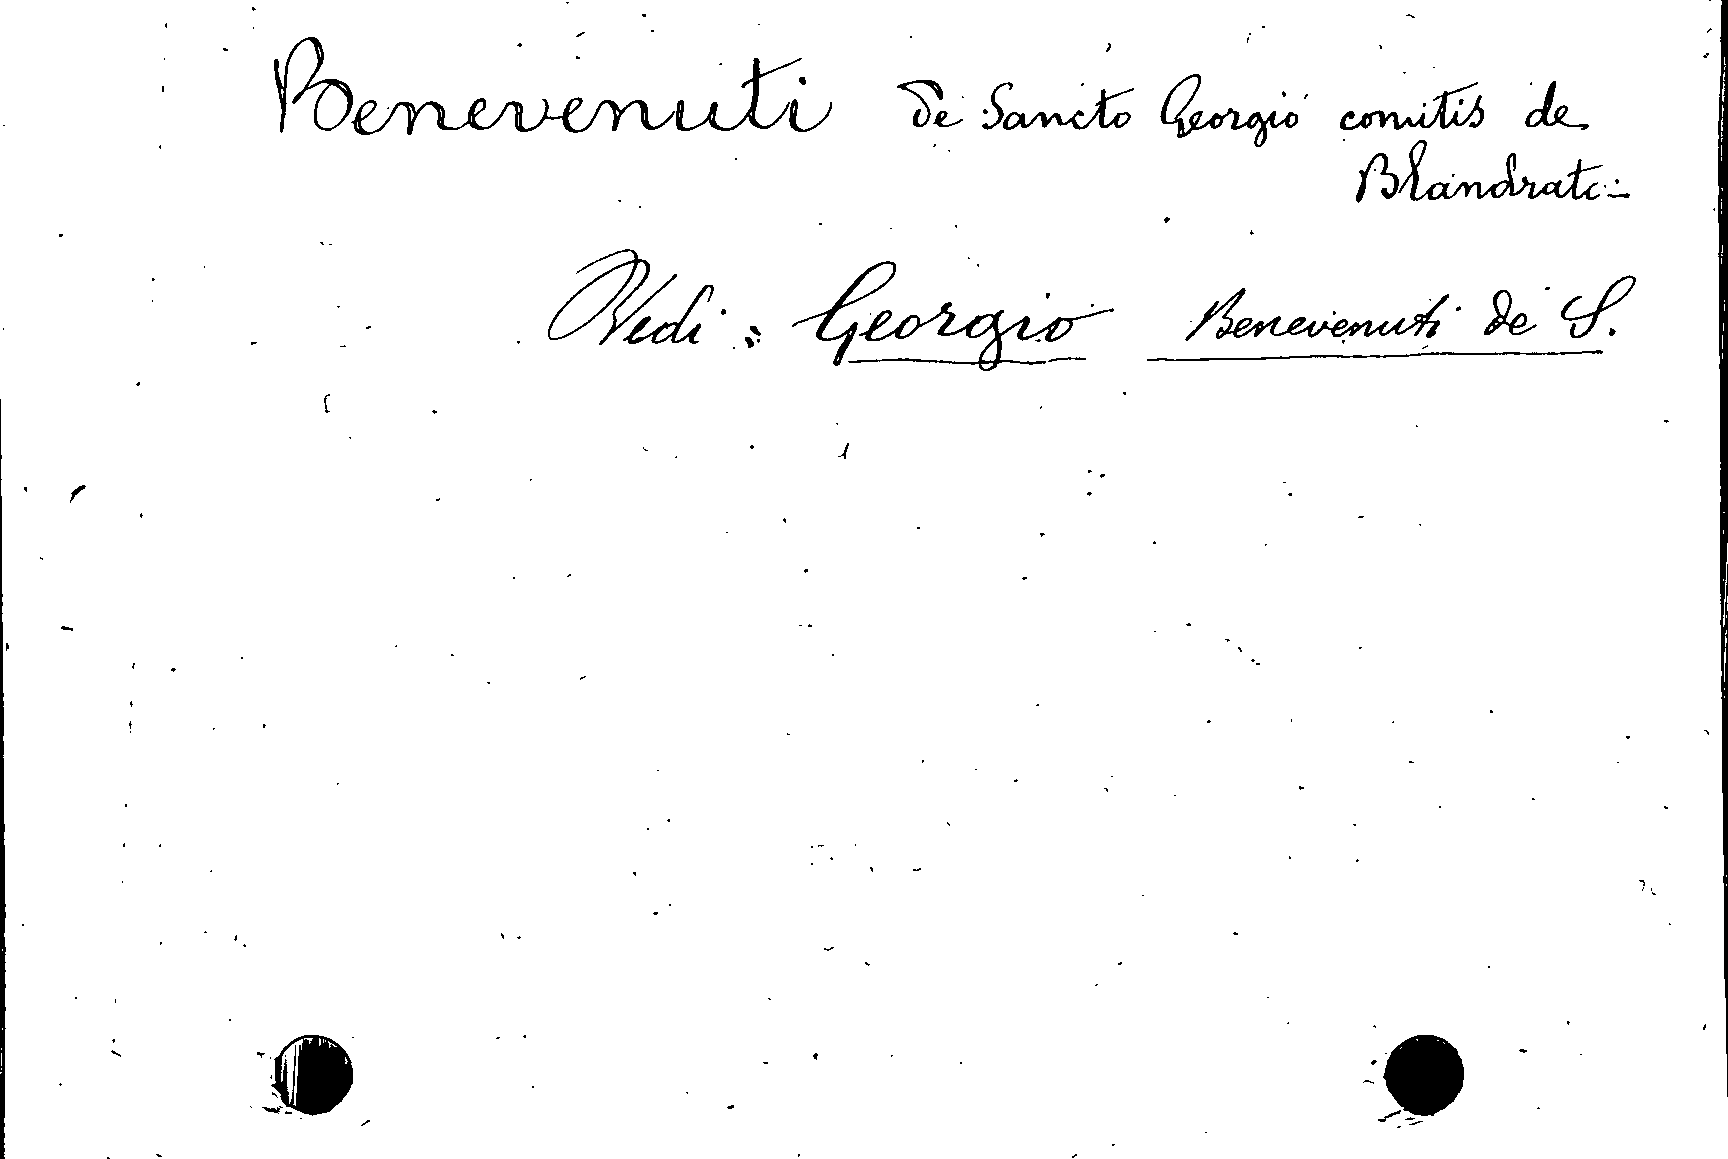 Benevenuti de Sancto Georgio comitis de
Blandrate:
Vedi: Georgio Benevenuti de S.